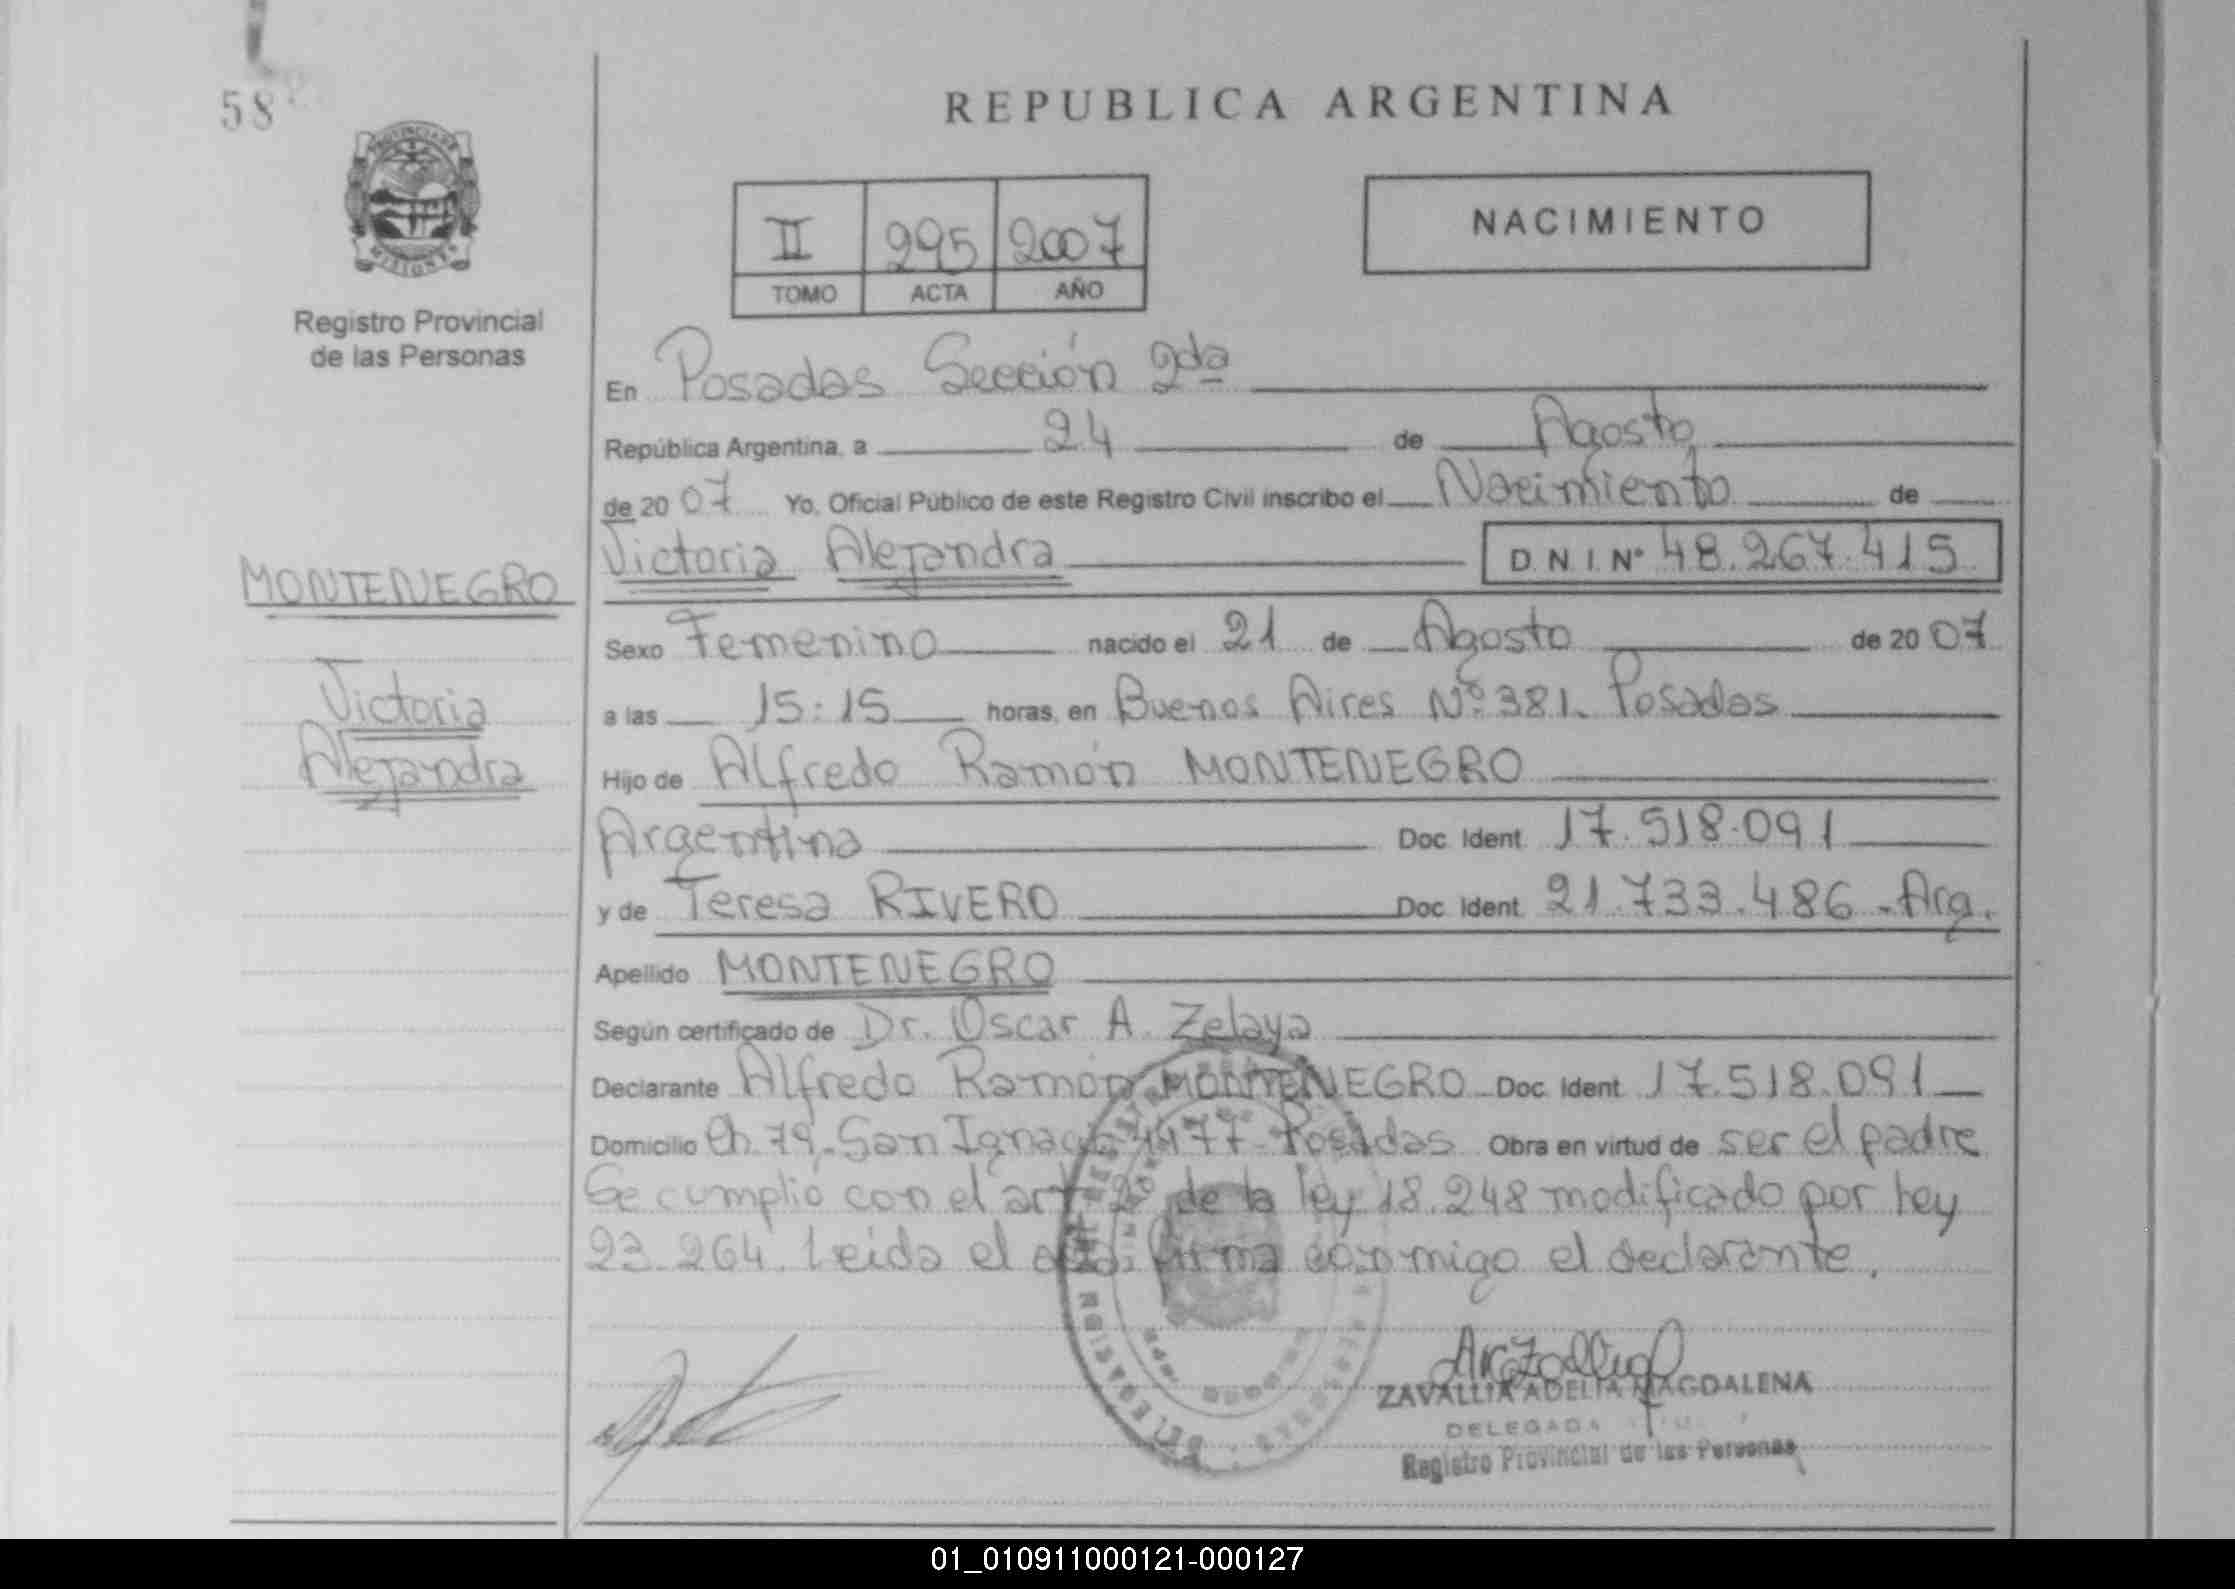 58
REPUBLICA ARGENTINA
PROVINCIA DE
MISIONES
Registro Provincial
de las Personas
II 295 2007
TOMO ACTA AÑO
NACIMIENTO
En Posadas Sección 2da
República Argentina, a 24 de Agosto
de 2007 Yo, Oficial Público de este Registro Civil inscribo el Nacimiento de
Victoria Alejandra D N I Nº 48.267.415
MONTENEGRO
Victoria
Alejandra
Sexo Femenino nacido el 21 de Agosto de 2007
a las 15:15 horas, en Buenos Aires Nº 381. Posadas
Hijo de Alfredo Ramón MONTENEGRO
Argentina Doc Ident 17.518.091
y de Teresa RIVERO Doc Ident 21.733.486 - Arg.
Apellido MONTENEGRO
Según certificado de Dr. Oscar A. Zelaya
Declarante Alfredo Ramón MONTENEGRO Doc Ident 17.518.091
Domicilio Ch. 79. San Ignacio Posadas Obra en virtud de ser el padre
Se cumplio con el art de la ley 18.248 modificado por ley
23.264. Leida el firma conmigo el declarante.
ZAVALLIA ADELIA MAGDALENA
DELEGADA
Registro Provincial de las Personas
01_010911000121-000127